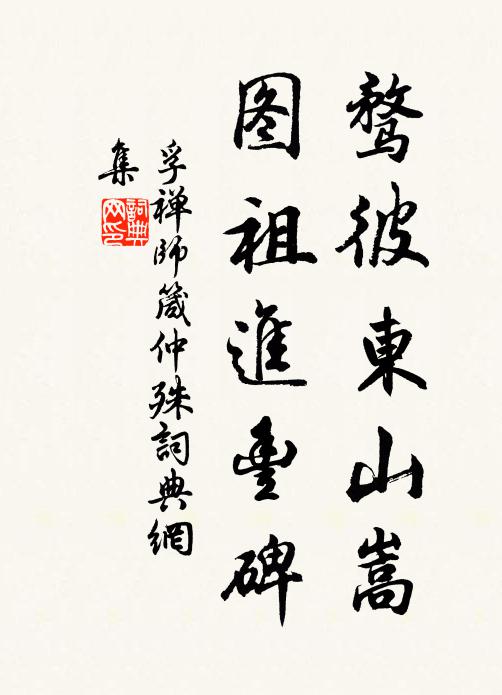 鹜彼東山嵩
图祖進豊碑
孚禅師箴仲殊詞典網
集
詞典
网印